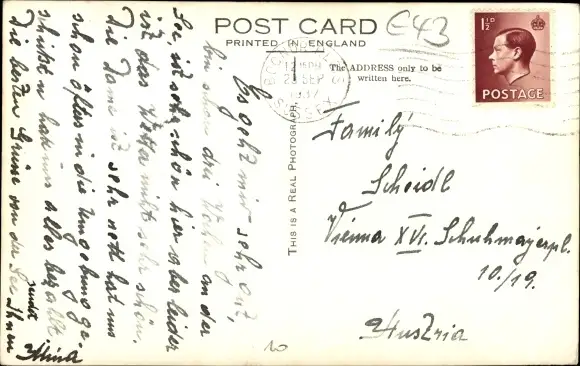 POST CARD
PRINTED IN ENGLAND
C43
The ADDRESS only to be
written here.
1½D
POSTAGE
12 15 PM
SEP
1937
SUSSEX
THIS IS A REAL PHOTOGRAPH
Es geht mir sehr gut,
bin schon drei Wochen an der
See, ist sehr schön hier aber leider
ist das Wetter nicht sehr schön.
Die Dame ist sehr nett hat uns
schon öfters in die Umgebung ge-
schickt u. hat uns alles bezahlt
Die besten Grüsse von der See
sendet
Ihnen
Mina
Family
Scheidl
Vienna XVI. Schuhmajerpl.
10./19.
Austria
10